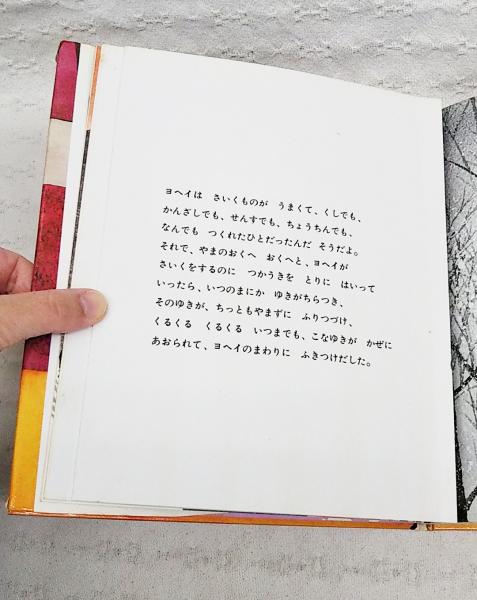 ヨヘイは　さいくものが　うまくて、くしでも、
かんざしでも、せんすでも、ちょうちんでも、
なんでも　つくれたひとだったんだ　そうだよ。
それで、やまのおくへ　おくへと、ヨヘイが
さいくをするのに　つかうきを　とりに　はいって
いったら、いつのまにか　ゆきがちらつき、
そのゆきが、ちっともやまずに　ふりつづけ、
くるくる　くるくる　いつまでも、こなゆきが　かぜに
あおられて、ヨヘイのまわりに　ふきつけだした。